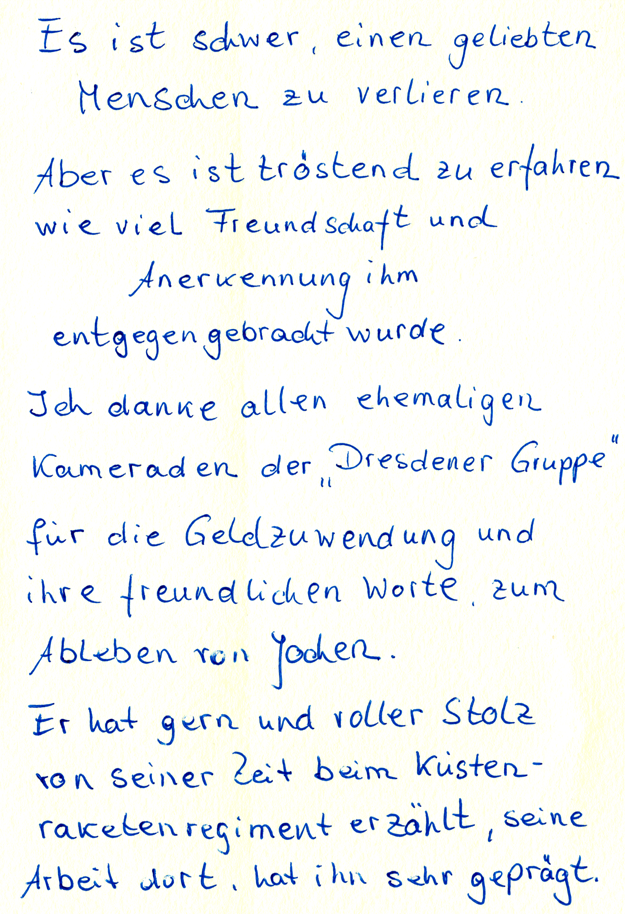 Es ist schwer, einen geliebten
Menschen zu verlieren.
Aber es ist tröstend zu erfahren
wie viel Freundschaft und
Anerkennung ihm
entgegengebracht wurde.
Ich danke allen ehemaligen
Kameraden der „Dresdener Gruppe"
für die Geldzuwendung und
ihre freundlichen Worte, zum
Ableben von Jochen.
Er hat gern und voller Stolz
von seiner Zeit beim Küsten-
raketenregiment erzählt, seine
Arbeit dort, hat ihn sehr geprägt.